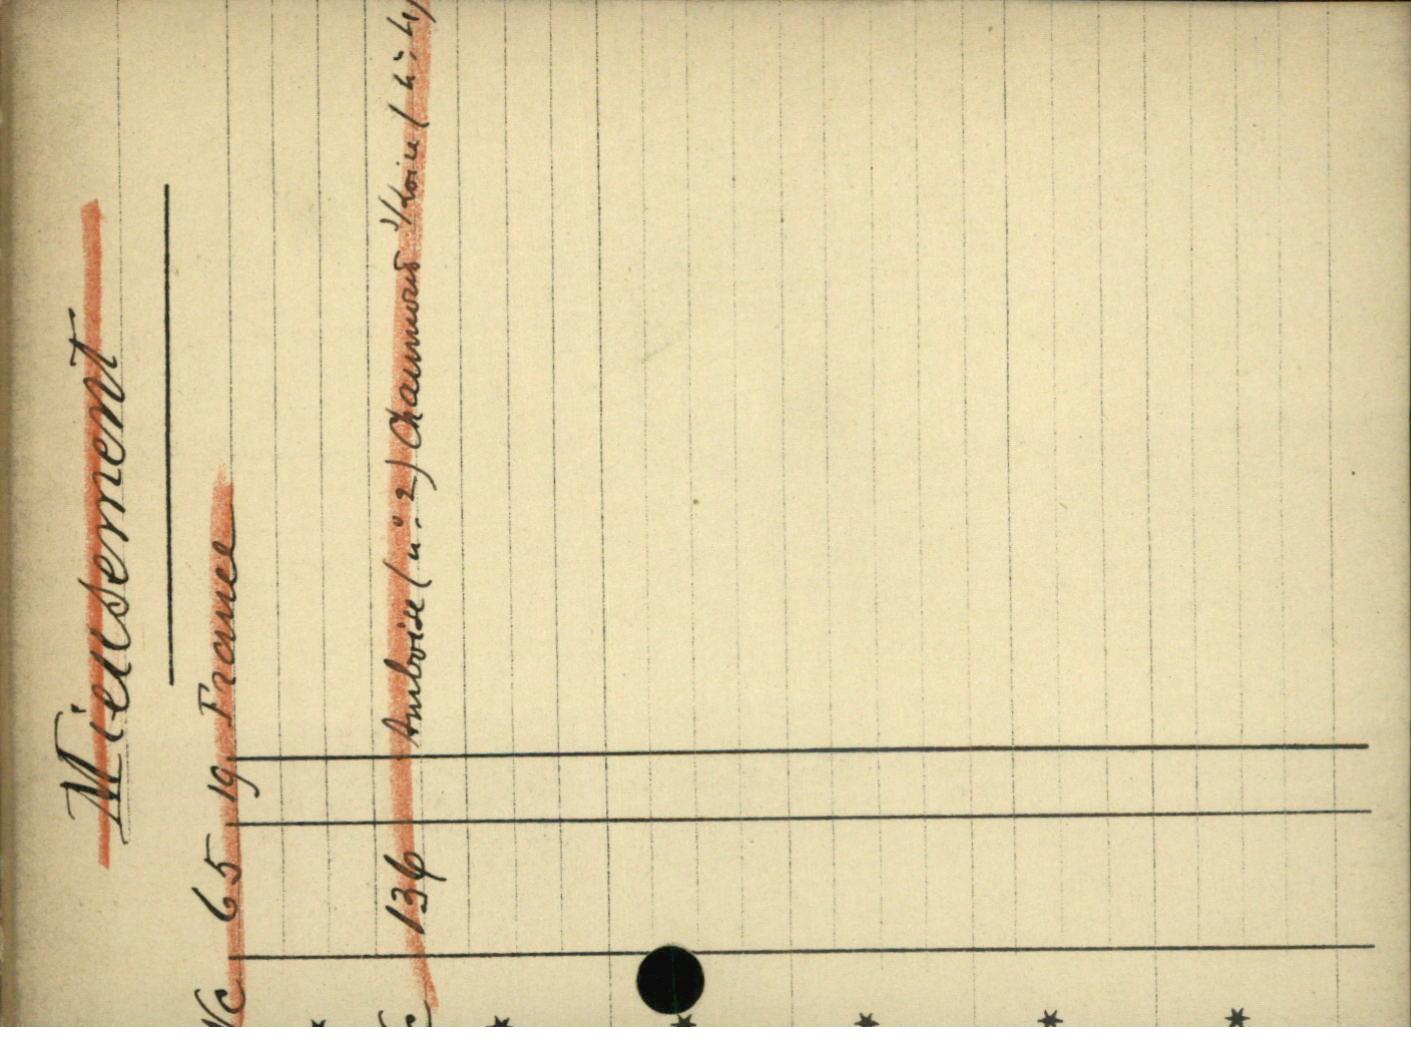 Mieusement
Vc 65 19 France
136 Amboise (n° 2) Chaumont s/Loire (n° 4)